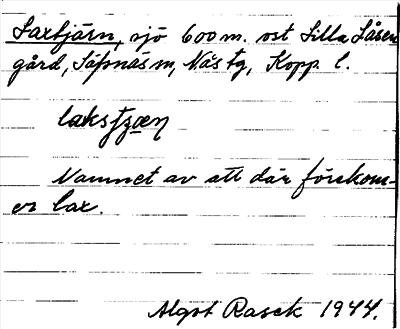 Laxtjärn, sjö 600 m. ost Lilla Låsen
gård, Säfsnäs sn, Näs tg, Kopp. l.
lakstʒæɳ
Namnet av att där förekom-
er lax.
Algot Rasck 1944.